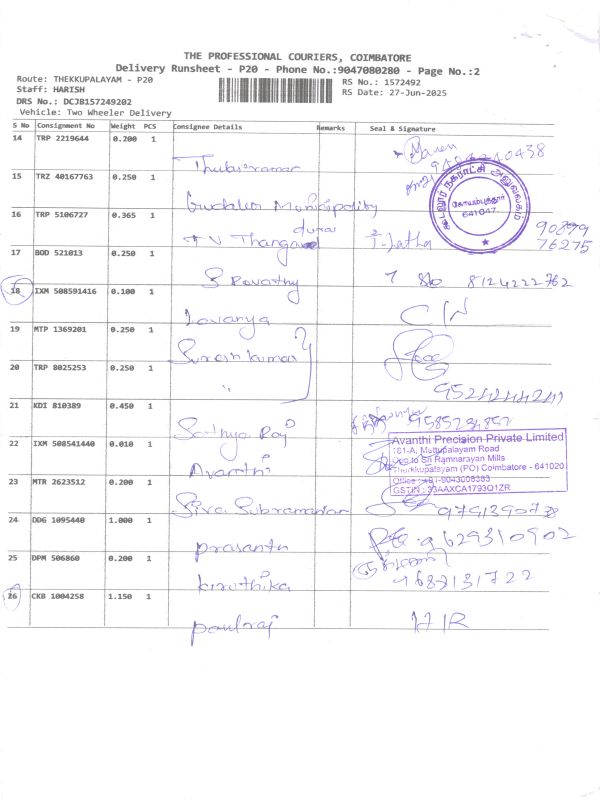 THE PROFESSIONAL COURIERS, COIMBATORE
Delivery Runsheet - P20 - Phone No.:9047080280 - Page No.:2
Route: THEKKUPALAYAM - P20
Staff: HARISH
DRS No.: DCJB157249202
Vehicle: Two Wheeler Delivery
RS No.: 1572492
RS Date: 27-Jun-2025
S No Consignment No Weight PCS Consignee Details Remarks Seal & Signature
14 TRP 2219644 0.200 1
15 TRZ 40167763 0.250 1
16 TRP 5106727 0.365 1 T V Thangadurai T. Latha 90899 76275
17 BOD 521013 0.250 1 S Revathy 8124222762
18 IXM 508591416 0.100 1 Lavanya C/N
19 MTP 1369201 0.250 1 Suresh kumar
20 TRP 8025253 0.250 1 "
21 KDI 810389 0.450 1 Sathya Raj
22 IXM 508541440 0.010 1 Avanthi
23 MTR 2623512 0.200 1 Siva Subramanian
24 DDG 1095440 1.000 1 prasanth 9629310902
25 DPM 506860 0.200 1 kiruthika
26 CKB 1004258 1.150 1 paulraj
கூடலூர் நகராட்சி அலுவலகம்
கோயம்புத்தூர்
641047
Avanthi Precision Private Limited
181-A, Mettupalayam Road
Opp.to Sri Ramnarayan Mills
Thekkupalayam (PO) Coimbatore - 641020
GSTIN : 33AAXCA1793Q1ZR